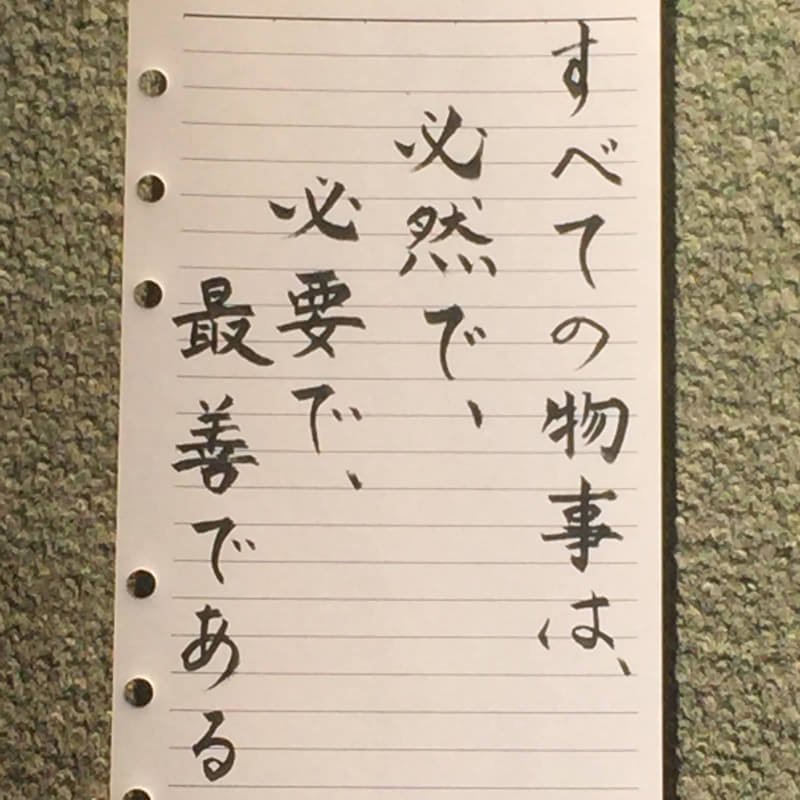 すべての物事は、
必然で、
必要で、
最善である